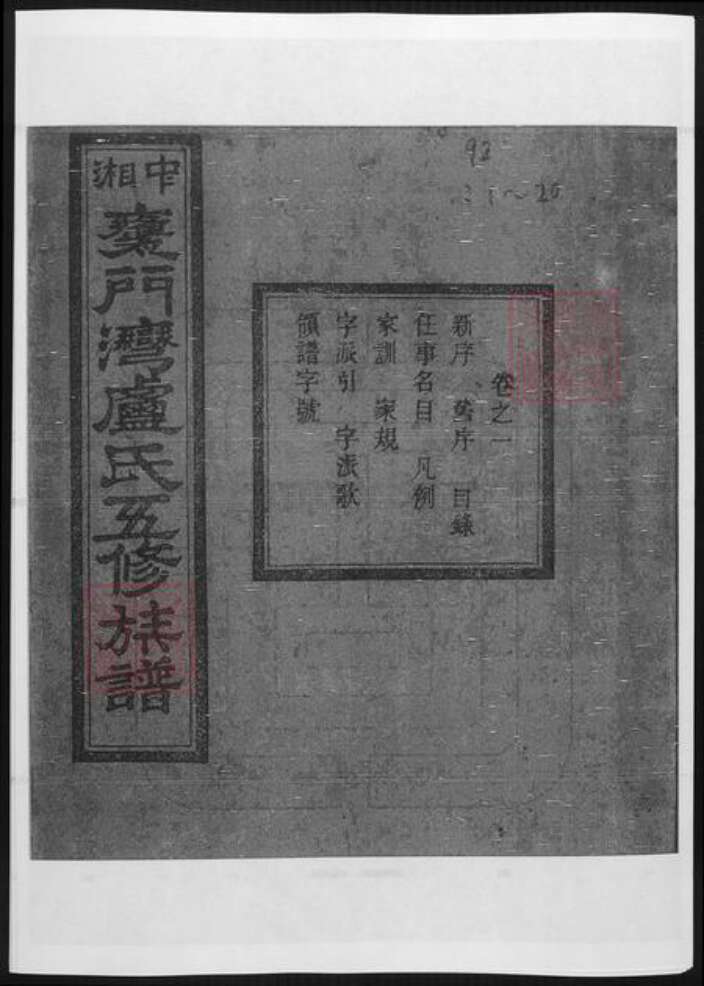 92
1~20
卷之一
新序 舊序 目錄
任事名目 凡例
家訓 家規
字派引 字派歌
領譜字號
中湘
門灣盧氏五修族譜